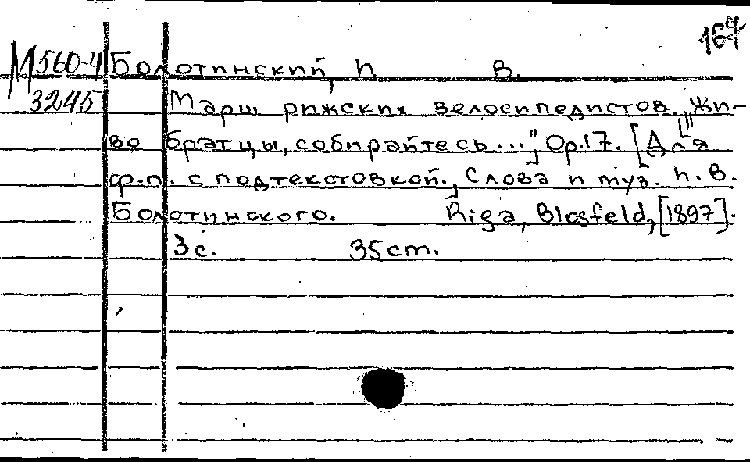 167
М 560-4 Болотинский, П. В.
3245 Марш рижских велосипедистов. „Жи-
во братцы, собирайтесь...", Op.17. [Для
ф.п. с подтекстовкой., Слова и муз. П. В.
Болотинского. Riga, Blosfeld, [1897].
3 с. 35 cm.